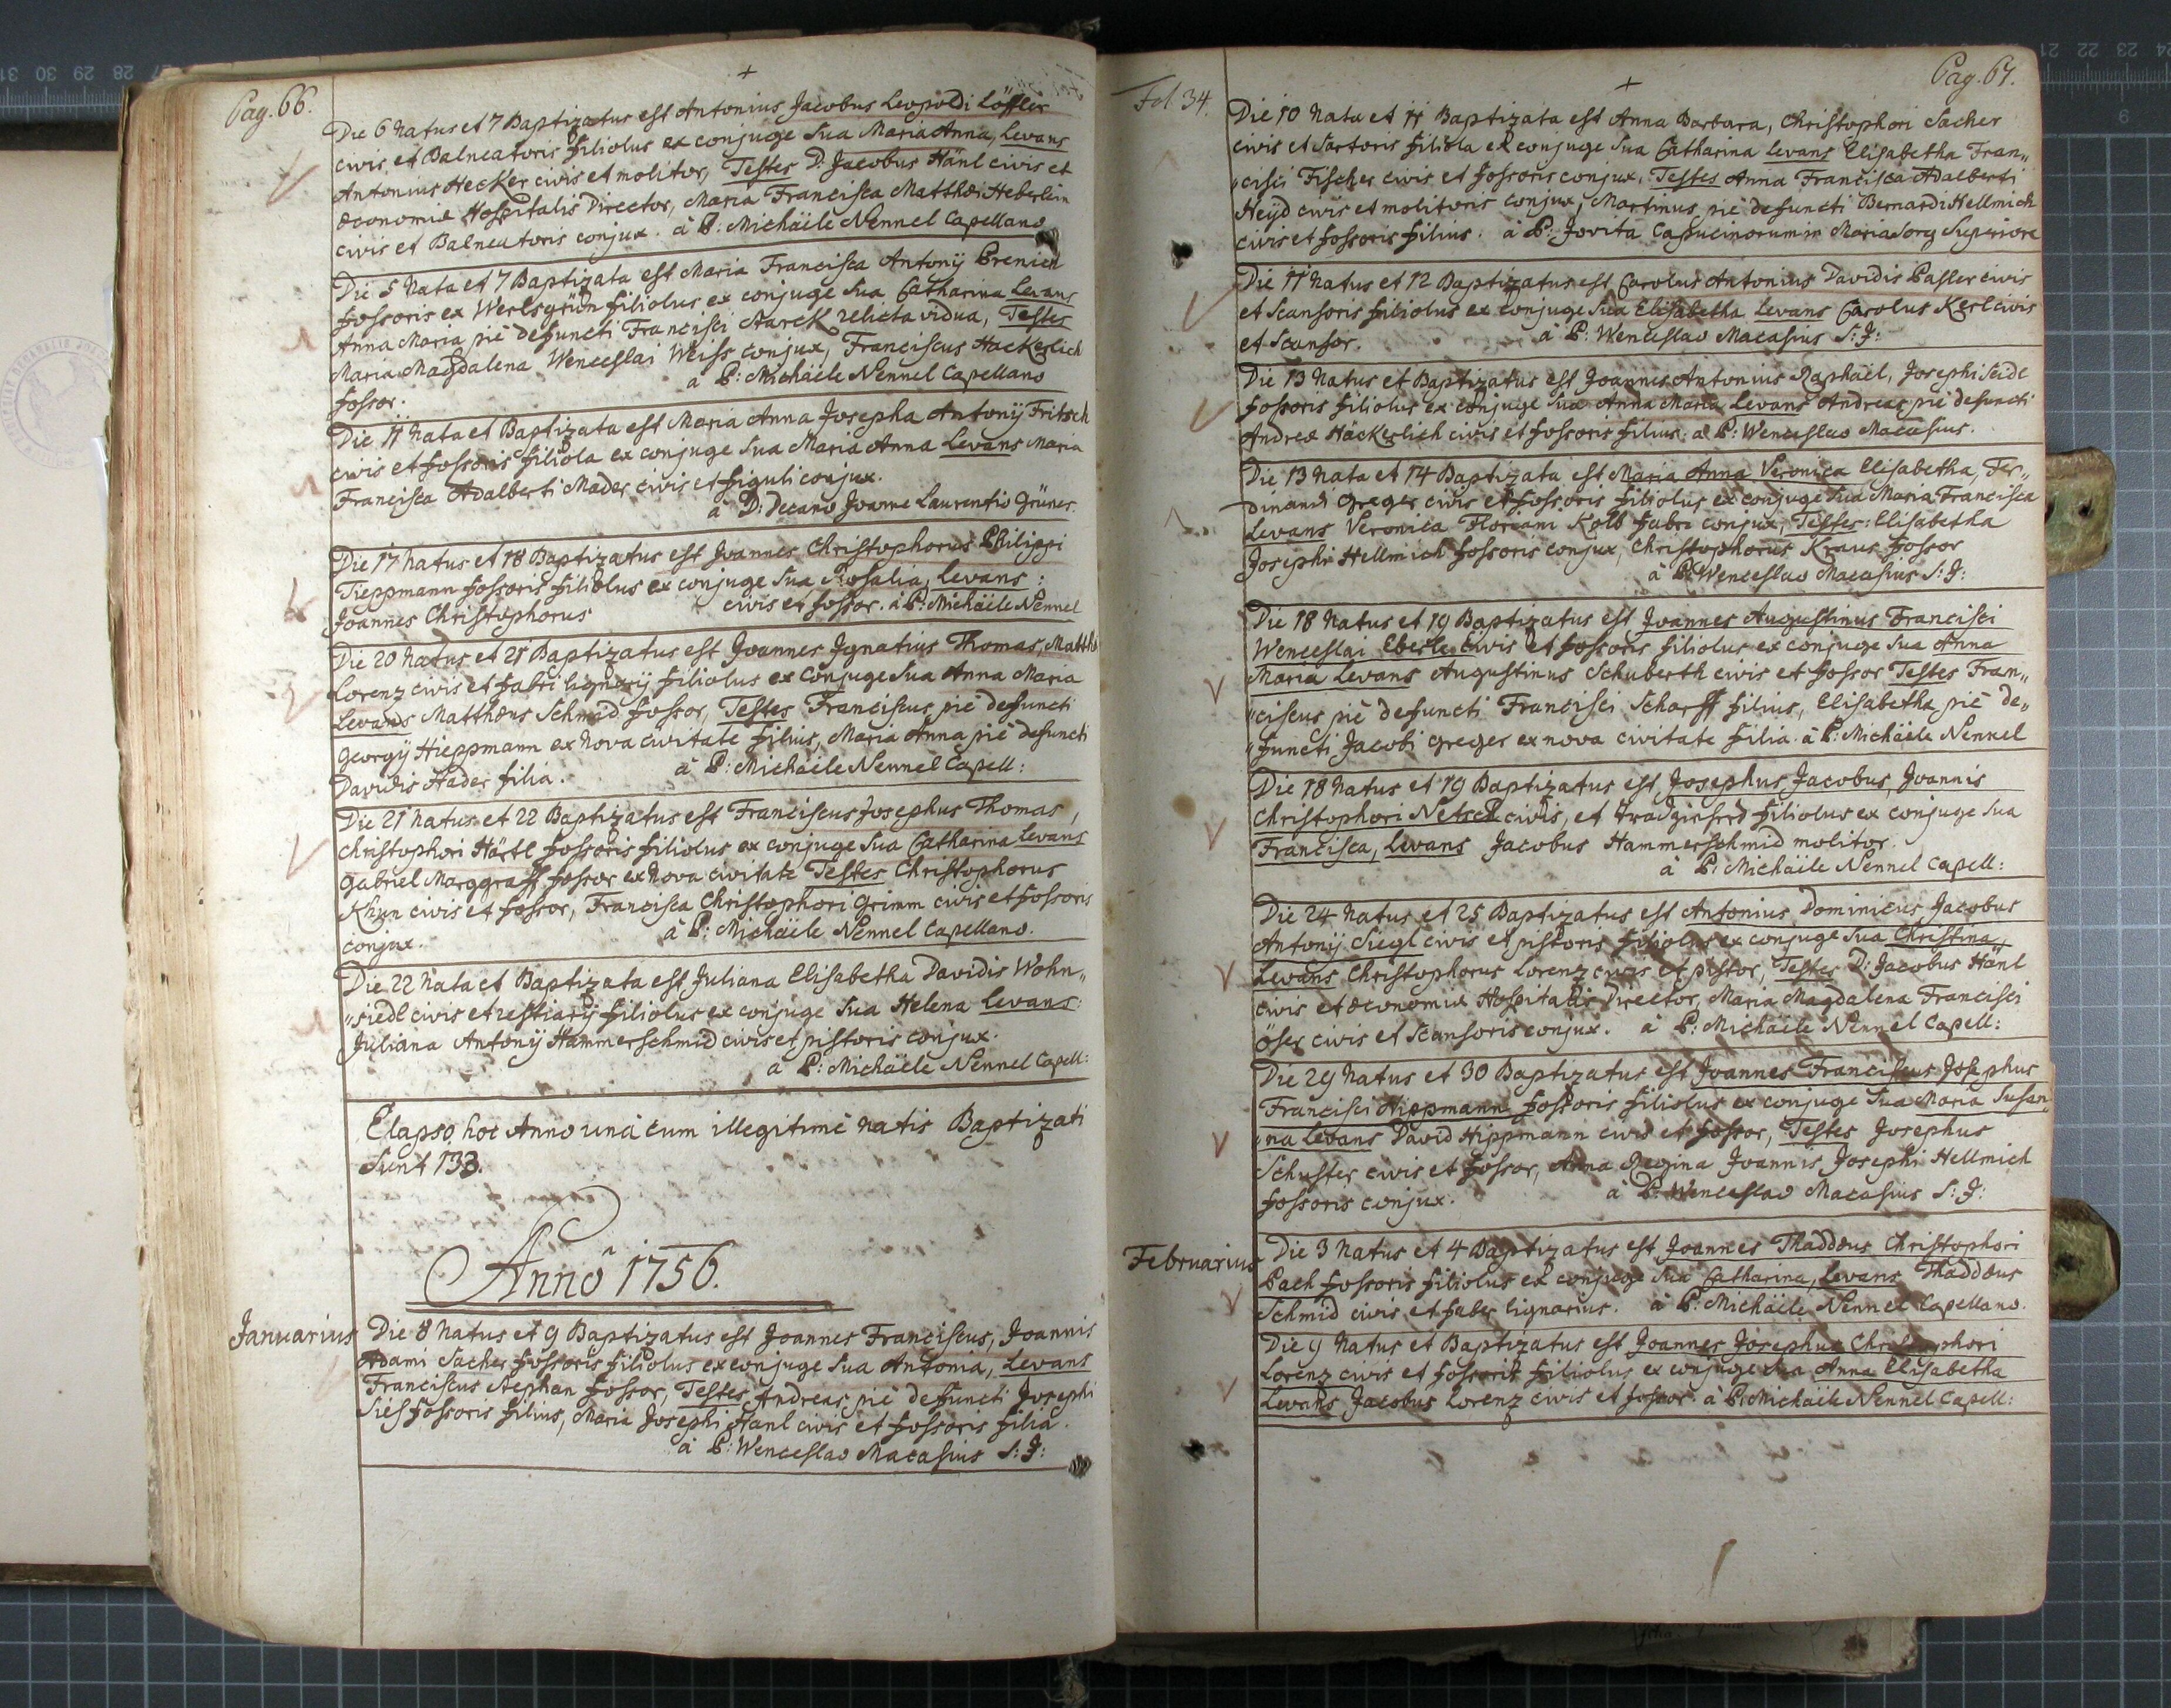 Pag. 66.
+
Die 6 Natus et 7 Baptizatus est Antonius Jacobus Leopoldi Löffler
civis et Balneatoris filiolus ex conjuge sua Maria Anna, Levans
Antonius Hecker civis et molitor, Testes D: Jacobus Hänl civis et
œconomiæ Hospitalis Director, Maria Francisca Matthæi Heberlein
civis et Balneatoris conjux. à P: Michäele Nennel Capellano
Die 5 Nata et 7 Baptizata est Maria Francisca Antonÿ
fossoris ex Werlsgrün filiolus ex conjuge sua Catharina Levans
Anna Maria piè defuncti Francisci Starck relicta vidua, Testes
Maria Magdalena Wenceslai Weiss conjux, Franciscus Hackerlich
fossor. à P: Michäele Nennel Capellano
Die 11 Nata et Baptizata est Maria Anna Josepha Antonÿ Fritsch
civis et fossoris filiola ex conjuge sua Maria Anna Levans Maria
Francisca Adalberti Mader civis et figuli conjux.
à D: Decano Joanne Laurentio Grüner
Die 17 Natus et 18 Baptizatus est Joannes Christophorus Philippi
Tieppmann fossoris filiolus ex conjuge sua Rosalia, Levans:
Joannes Christophorus civis et fossor. à P: Michäele Nennel
Die 20 Natus et 21 Baptizatus est Joannes Ignatius Thomas, Matthæi
Lorenz civis et fabri lignarÿ filiolus ex conjuge sua Anna Maria
Levans Matthæus Schmid fossor, Testes Franciscus piè defuncti
Georgÿ Hieppmann ex Nova civitate filius, Maria Anna piè defuncti
Davidis Hader filia. à P: Michäele Nennel Capell:
Die 21 Natus et 22 Baptizatus est Franciscus Josephus Thomas,
Christophori Härtl fossoris filiolus ex conjuge sua Catharina Levans
Gabriel Marggraff fossor ex Nova civitate Testes Christophorus
Khun civis et fossor, Francisca Christophori Grimm civis et fossoris
conjux. à P: Michäele Nennel Capellano.
Die 22 Nata et Baptizata est Juliana Elisabetha Davidis Wohn„
„siedl civis et restiarÿ filiolus ex conjuge sua Helena Levans:
Juliana Antonÿ Hammerschmid civis et pistoris conjux.
à P: Michäele Nennel Capell:
Elapso hoc Anno unà cum illegitimè natis Baptizati
sunt 133.
Annô 1756.
Januarius
Die 8 Natus et 9 Baptizatus est Joannes Franciscus, Joannis
Adami Sacher fossoris filiolus ex conjuge sua Antonia, Levans
Franciscus Stephan fossor, Testes Andreas piè defuncti Josephi
Sies fossoris filius, Maria Josephi Hanl civis et fossoris filia.
à P: Wenceslao Macasius S: J:
Fol 34.
+
Pag. 67.
Die 10 Nata et 11 Baptizata est Anna Barbara, Christophori Sacher
civis et sartoris filiola ex conjuge sua Catharina Levans Elisabetha Fran„
„cisci Fischer civis et fossoris conjux, Testes Anna Francisca Adalberti
Heÿd civis et molitoris conjux, Martinus piè defuncti Bernardi Hellmich
civis et fossoris filius. à P: Jovita Capucinorum in Mariasorg Superiore
Die 11 Natus et 12 Baptizatus est Carolus Antonius Davidis Passler civis
et scansoris filiolus ex conjuge sua Elisabetha Levans Carolus Kerl civis
et scansor. à P: Wenceslao Macasius S: J:
Die 13 Natus et Baptizatus est Joannes Antonius Raphael, Josephi Seidl
fossoris filiolus ex conjuge sua Anna Maria Levans Andreas piè defuncti
Andreæ Häckerlich civis et fossoris filius. à P: Wenceslao Macasius.
Die 13 Nata et 14 Baptizata est Maria Anna Veronica Elisabetha, Fer„
dinandi Greger civis et fossoris filiolus ex conjuge sua Maria Francisca
Levans Veronica Floriani Kolb fabri conjux, Testes: Elisabetha
Josephi Hellmich fossoris conjux, Christophorus Kraus fossor
à P: Wenceslao Macasius S: J:
Die 18 Natus et 19 Baptizatus est Joannes Augustinus Francisci
Wenceslai Eberle civis et fossoris filiolus ex conjuge sua Anna
Maria Levans Augustinus Schuberth civis et fossor Testes Fran„
„ciscus piè defuncti Francisci Scharff filius, Elisabetha piè de„
„functi Jacobi Greger ex nova civitate filia. à P: Michäele Nennel
Die 18 Natus et 19 Baptizatus est Josephus Jacobus, Joannis
Christophori Netsch civis, et filiolus ex conjuge sua
Francisca, Levans Jacobus Hammerschmid molitor.
à P: Michäele Nennel Capell:
Die 24 Natus et 25 Baptizatus est Antonius Dominicus Jacobus
Antonÿ Siegl civis et pistoris filiolus ex conjuge sua Christina,
Levans Christophorus Lorenz civis et pistor, Testes D: Jacobus Hänl
civis et œconomiæ Hospitalis Director, Maria Magdalena Francisci
öser civis et scansoris conjux. à P: Michäele Nennel Capell:
Die 29 Natus et 30 Baptizatus est Joannes Franciscus Josephus
Francisci Hippmann fossoris filiolus ex conjuge sua Maria Susan„
„na Levans David Hippmann civis et fossor, Testes Josephus
Schuster civis et fossor, Anna Regina Joannis Josephi Hellmich
fossoris conjux. à P: Wenceslao Macasius S: J:
Februarius
Die 3 Natus et 4 Baptizatus est Joannes Thaddæus Christophori
Pach fossoris filiolus ex conjuge sua Catharina, Levans Thaddæus
Schmid civis et faber lignarius. à P: Michäele Nennel Capellano.
Die 9 Natus et Baptizatus est Joannes Josephus Christophori
Lorenz civis et fossoris filiolus ex conjuge sua Anna Elisabetha
Levans Jacobus Lorenz civis et fossor. à P: Michäele Nennel Capell: